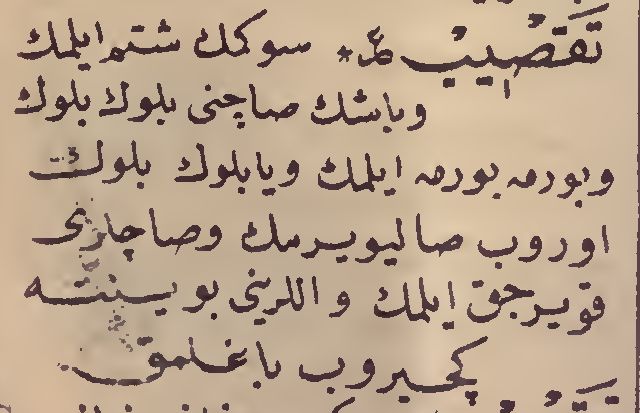 تقصيب سوكمك شتم ايلمك
وباشك صاچنى بلوك بلوك
وبورمه بورمه ايلمك ويا بلوك بلوك
اوروب صاليويرمك وصاچلرى
قويرجق ايلمك و اللرينى بويننه
كچيروب باغلمق